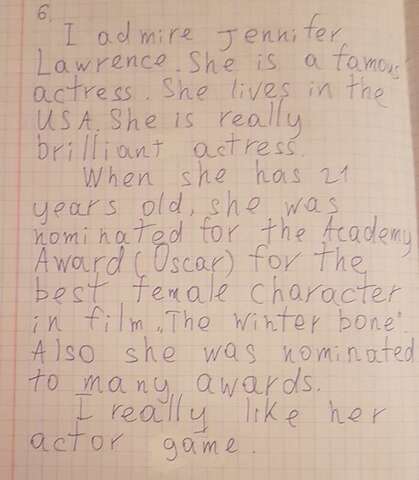 6.
I admire Jennifer
Lawrence. She is a famous
actress. She lives in the
USA. She is really
brilliant actress.
When she has 21
years old, she was
nominated for the Academy
Award (Oscar) for the
best female character
in film „The winter bone".
Also she was nominated
to many awards.
I really like her
actor game.